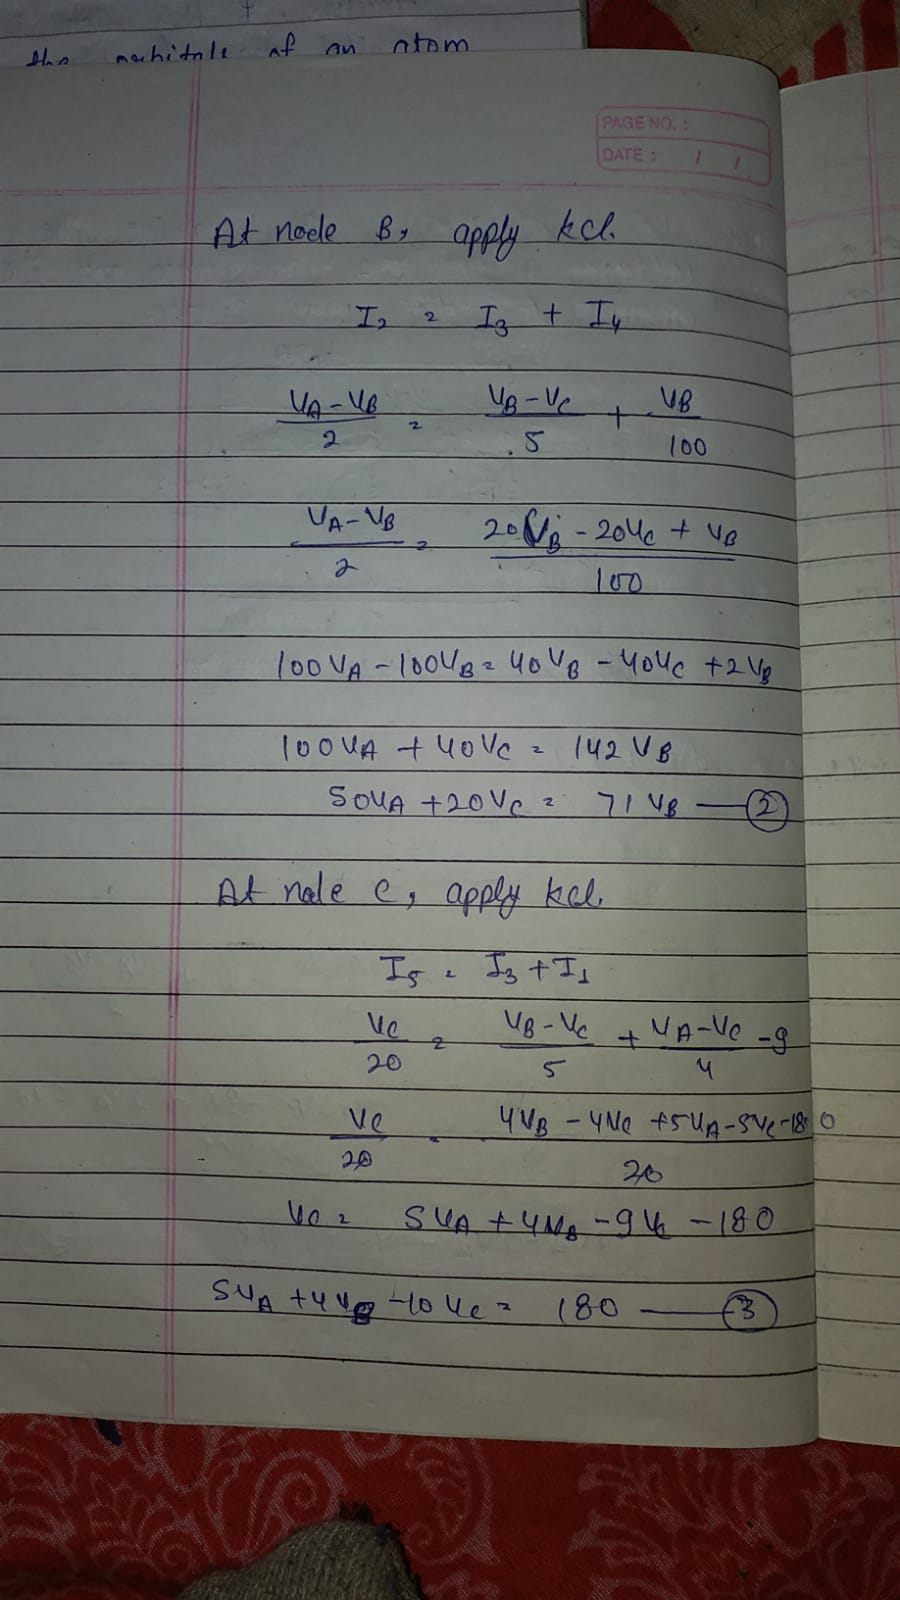 the of an atom
PAGE NO. :
DATE : / /
At node B, apply kcl.
I₂ = I₃ + I₄
(VA - VB)/2 = (VB - VC)/5 + VB/100
(VA - VB)/2 = (20VB - 20VC + VB)/100
100VA - 100VB = 40VB - 40VC + 2VB
100VA + 40VC = 142VB
50VA + 20VC = 71VB — ②
At node C, apply kcl.
I₅ = I₃ + I₁
VC/20 = (VB - VC)/5 + (VA - VC)/4 - 9
VC/20 = (4VB - 4VC + 5VA - 5VC - 180)/20
VC = 5VA + 4VB - 9VC - 180
5VA + 4VB - 10VC = 180 — ③